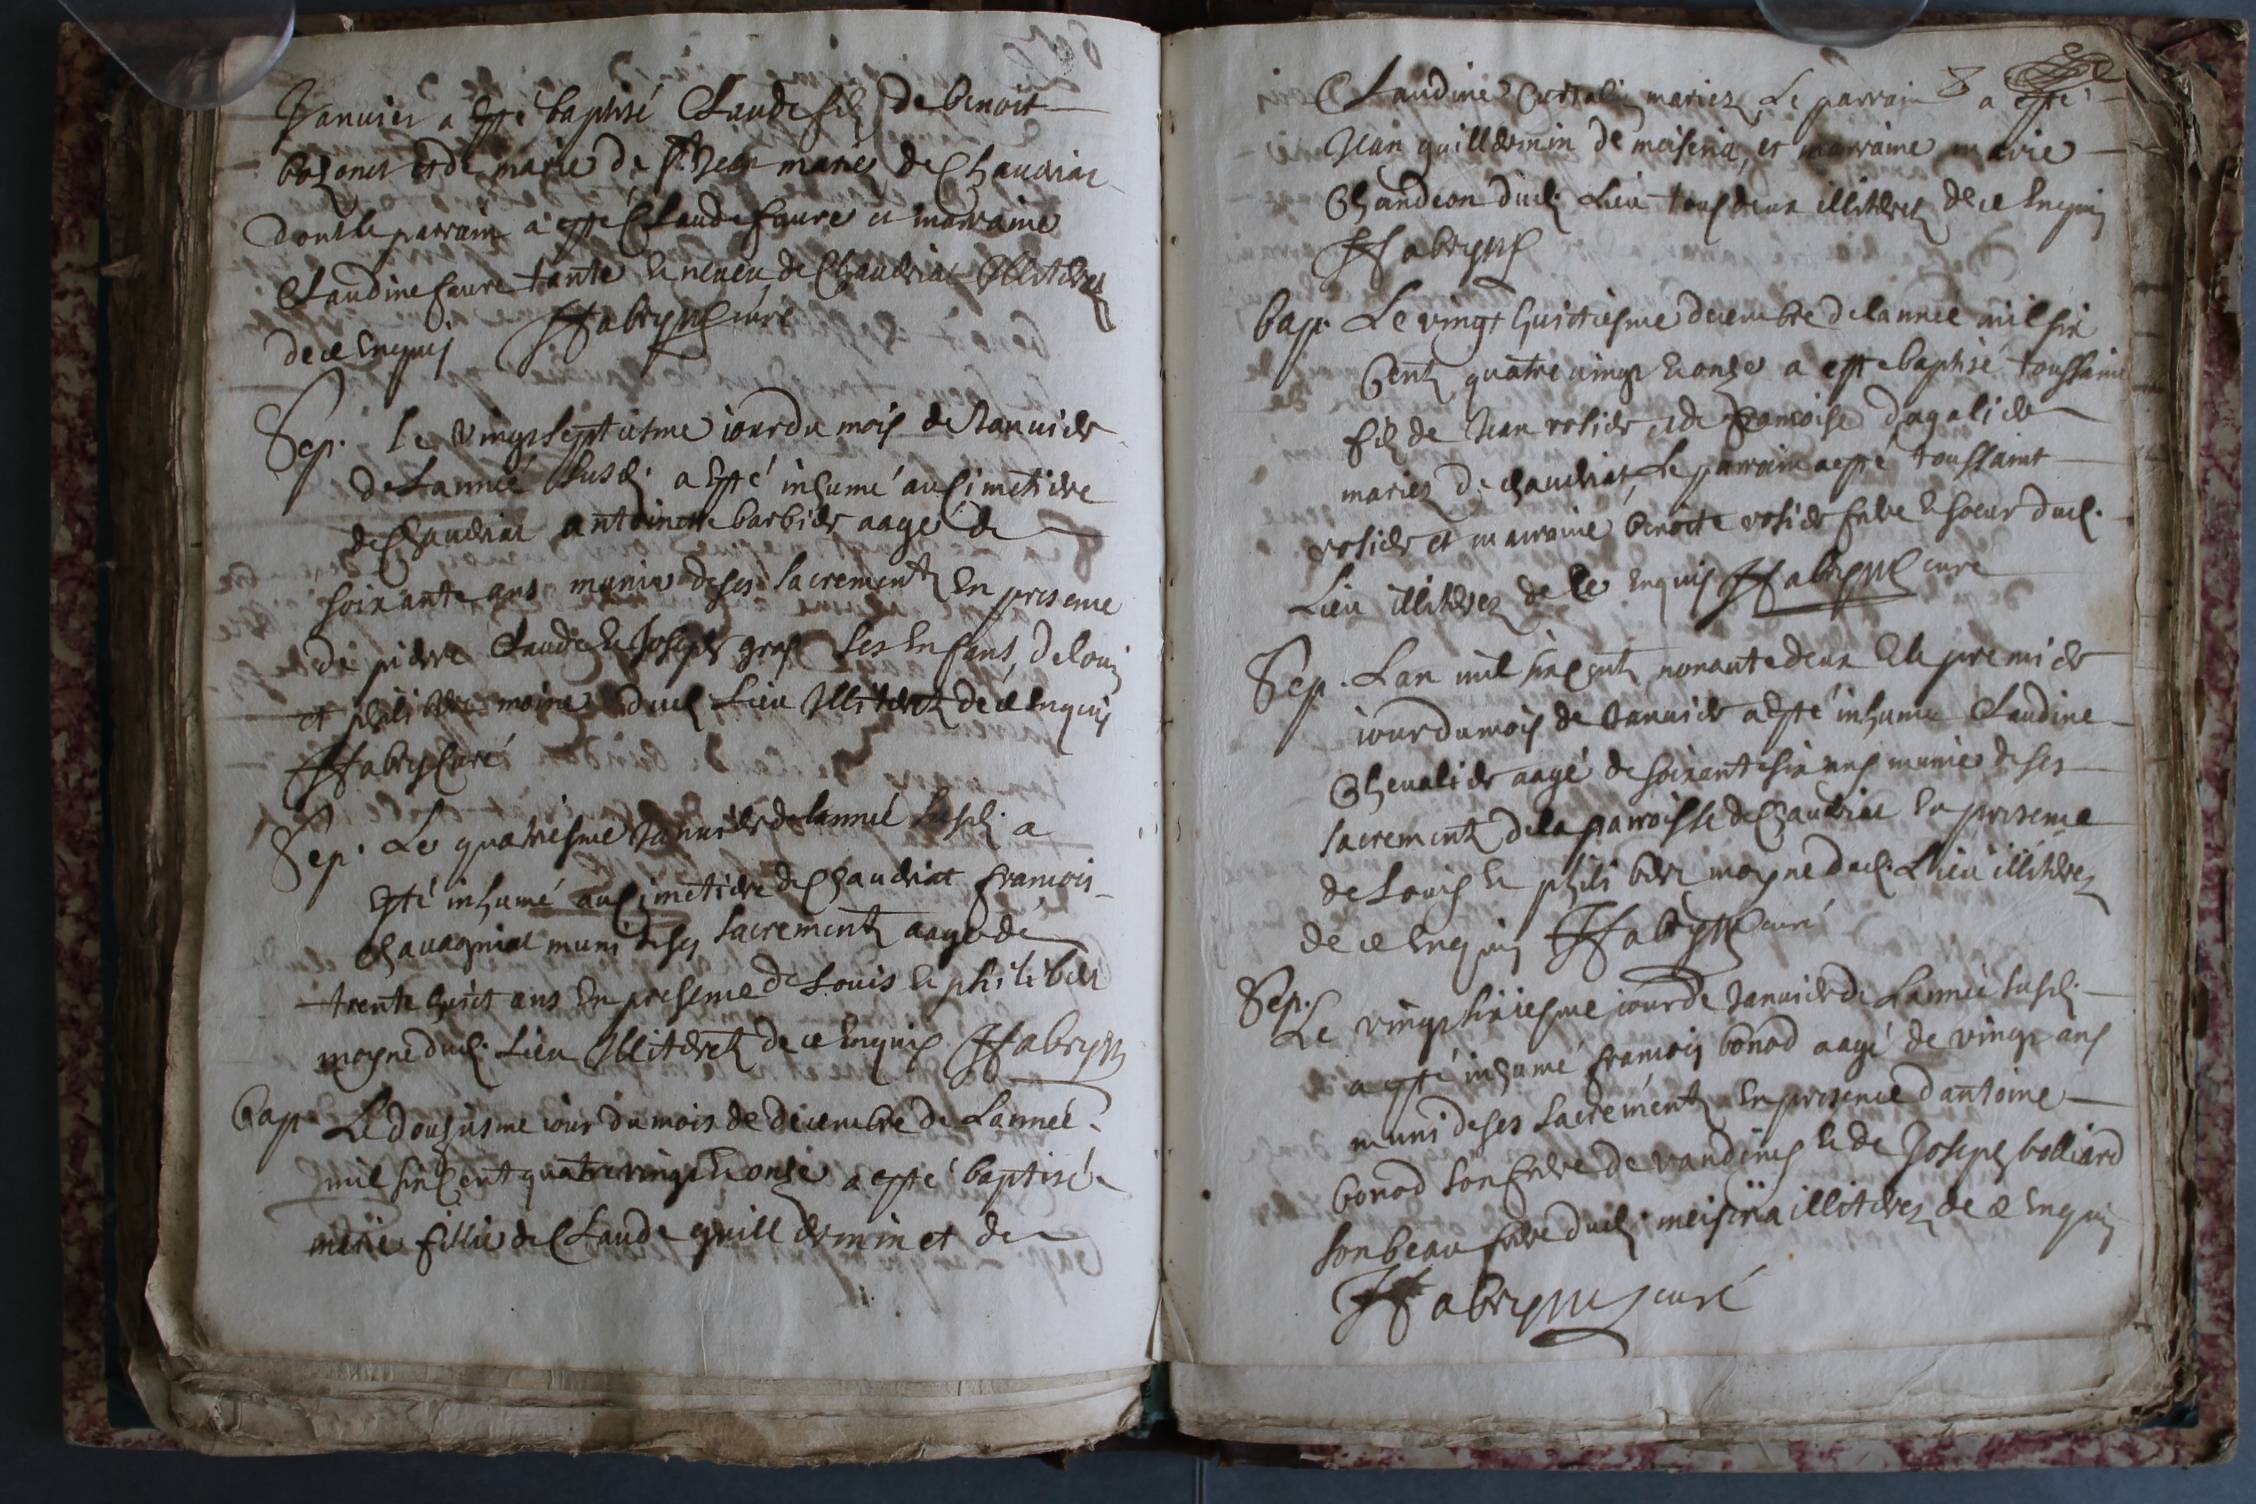 Janvier a esté baptisé Claude filz de benoit
et de marie de St Jean mariés de Chaudiat
dont le parrain a esté Claude faure et marraine
Claudine faure tante & neveu de Chaudiat illiterez
de ce Enquis JFabry curé
Sep. Le vingt septiesme jour du mois de Janvier
de L'année susd. a Esté inhumé au Cimetiere
de Chaudiat antoinette barbier aagé de
soixante ans munie de ses sacrementz En presence
de pierre Claude & Joseph gras ses Enfants, de loui
et philibert moine dud Lieu Illiterez de ce Enquis
JFabry Curé
Sep. Le quatriesme Janvier de lannée susd. a
Esté inhumé au Cimetiere de Chaudiat francois
Chavagniat muni de ses sacrementz aagé de
trente huict ans En presence de Louis & philiber
moyne dud. Lieu Illiterez de ce Enquis JFabry
bap. Le douziesme jour du mois de decembre de Lannée
mil six Cent quatre vingt & onze a esté baptisé
marie fillie de Claude guillermin et de
8
Claudine mariez Le parrain a esté
Jean guillermin de meiseria, et marraine marie
Chandeon dud. Lieu tous deux illiterez de ce Enquis
JFabry
bap. Le vingt huictiesme decembre de lannée mil six
Centz quatre vingt & onze a esté baptisé toussaint
filz de Jean rosier et de francoise dagalier
mariez de chaudiat, Le parrain a esté toussaint
rosier et marraine benoite rosier frere & soeur dud.
Lieu illiterez de ce Enquis JFabry curé
Sep. Lan mil six Centz nonante deux & le premier
jour du mois de Janvier a Esté inhumé Claudine
Chevalier aagé de soixante six ans munie de ses
sacrementz de la parroisse de Chaudiat En presence
de Louis & philiber moyne dud. Lieu illiterez
de ce Enquis JFabry curé
Sep. Le vingt sixiesme jour de Janvier de Lannée susd.
a esté inhumé francois bonod aagé de vingt ans
muni de ses sacrementz En presence d'antoine
bonod son frere de vandeins & de Joseph bolliard
son beau frere dud. meiseria illiterez de ce Enquis
JFabry curé